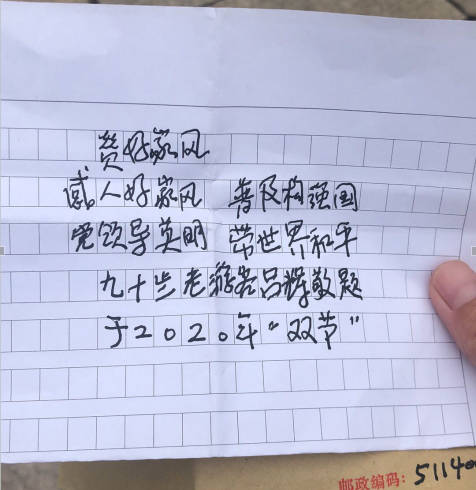 赞好家风
感人好家风 普及构强国
党领导英明 带世界和平
九十岁老游客吕辉敬题
于2020年“双节”
邮政编码：51140